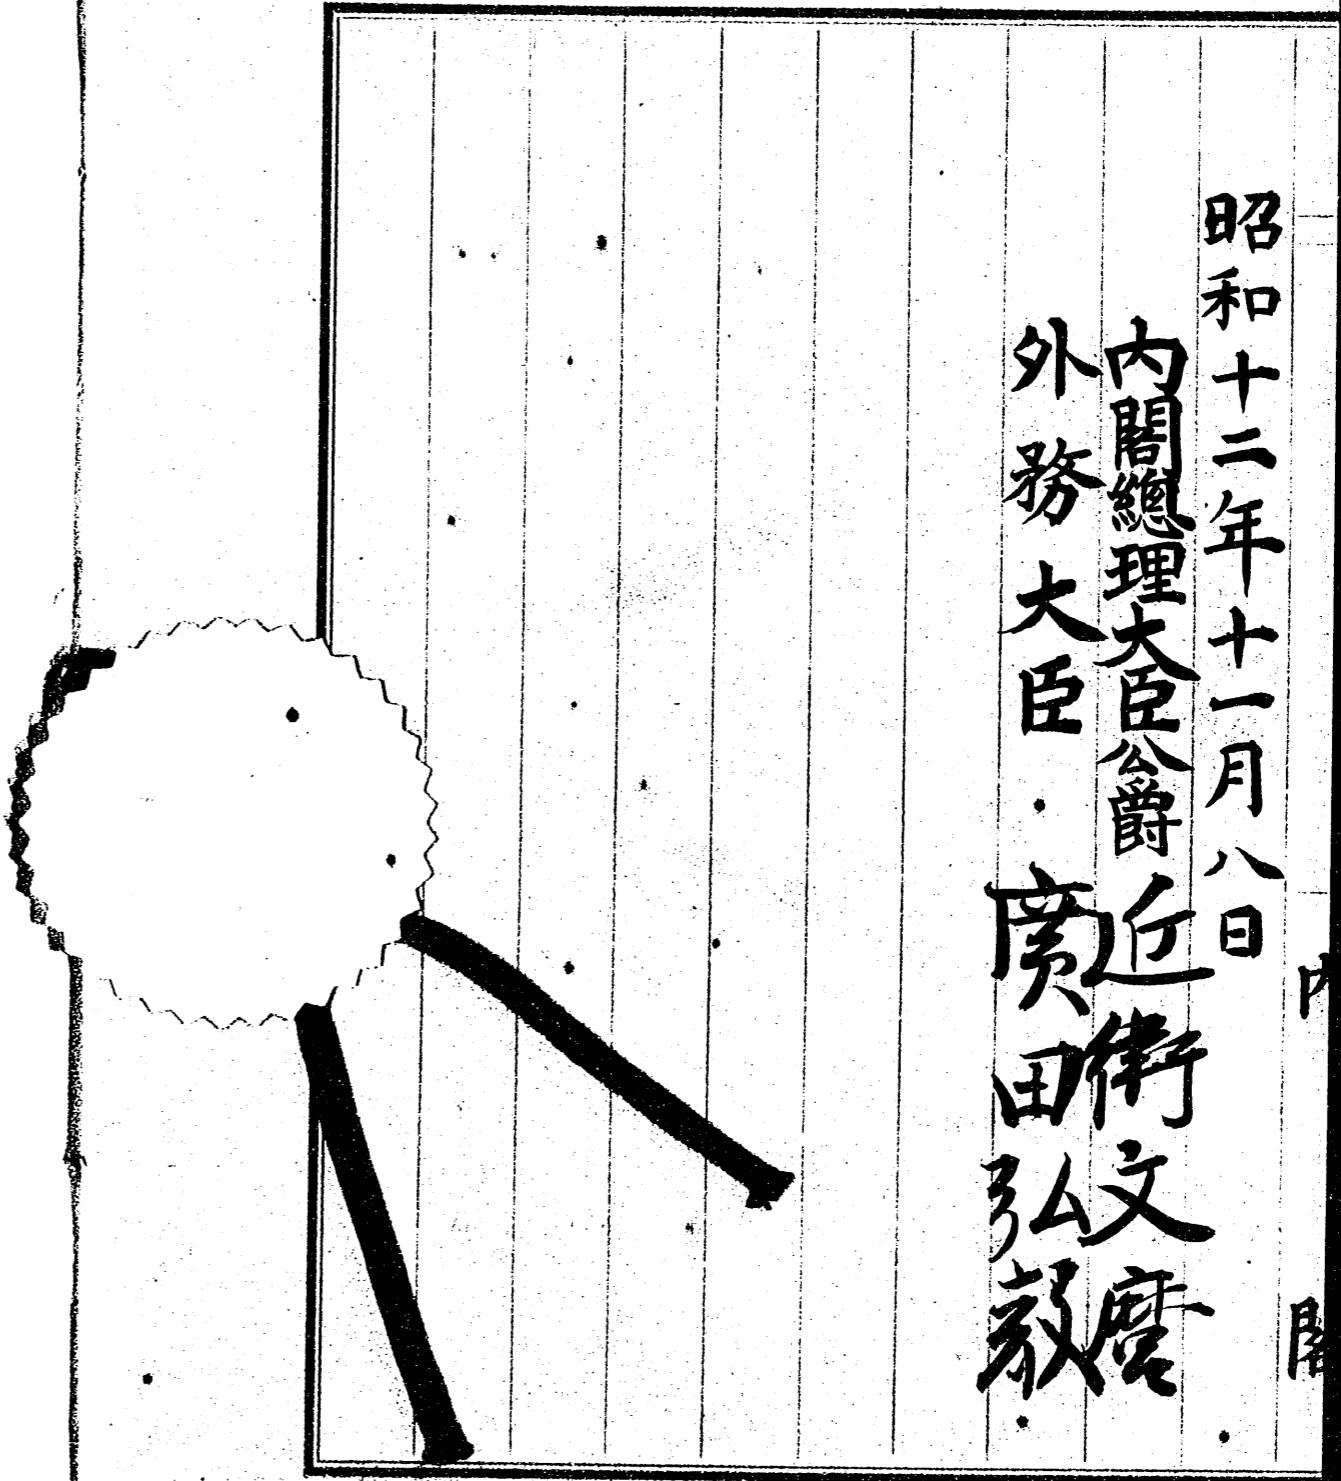 昭和十二年十一月八日
內閣總理大臣公爵近衛文麿
外務大臣廣田弘毅
內閣